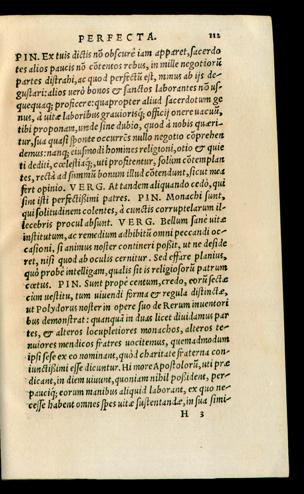 PERFECTA. 112
PIN. Ex tuis dictis nō obscurè iam apparet, sacerdo
tes alios paucis nō cōtentos rebus, in mille negotiorū
partes distrahi, ac quod perfectū est, minus ab ijs de-
gustari: alios uerò bonos & sanctos laborantes nō us-
quequaq; proficere: quapropter aliud sacerdotum ge
nus, à uitæ laboribus grauiorisq; officij onere uacuū,
tibi proponam, unde sine dubio, quod à nobis quæri-
tur, sua quasi sponte occurrēs nullo negotio cōprehen
demus: nanq; eiusmodi homines religioni, otio & quie
ti dediti, cœlestiaq;, uti profitentur, solum cōtemplan
tes, rectà ad summū bonum illud cōtendunt, sicut mea
fert opinio. VERG. At tandem aliquando cedò, qui
sint isti perfectissimi patres. PIN. Monachi sunt,
qui solitudinem colentes, à cunctis corruptelarum il-
lecebris procul absunt. VERG. Bellum sanè uitæ
institutum, ac remedium adhibitū omni peccandi oc-
casioni, si animus noster contineri poßit, ut ne deside
ret, nisi quod ab oculis cernitur. Sed effare planius,
quò probè intelligam, qualis sit is religiosorū patrum
cœtus. PIN. Sunt propè centum, credo, eorū sectæ
cùm uestitu, tum uiuendi forma & regula distinctæ,
ut Polydorus noster in opere suo de Rerum inuentori
bus demonstrat: quanquā in duas licet diuidamus par
tes, & alteros locupletiores monachos, alteros te-
nuiores mendicos fratres uocitemus, quemadmodum
ipsi sese ex eo nominant, quòd charitate fraterna con-
iunctißimi esse dicuntur. Hi more Apostolorū, uti præ
dicant, in diem uiuunt, quoniam nihil poßident, per-
pauciq; eorum manibus aliquid laborant, ex quo ne-
cesse habent omnes spes uitæ sustentandæ, in sua simi-
H 3